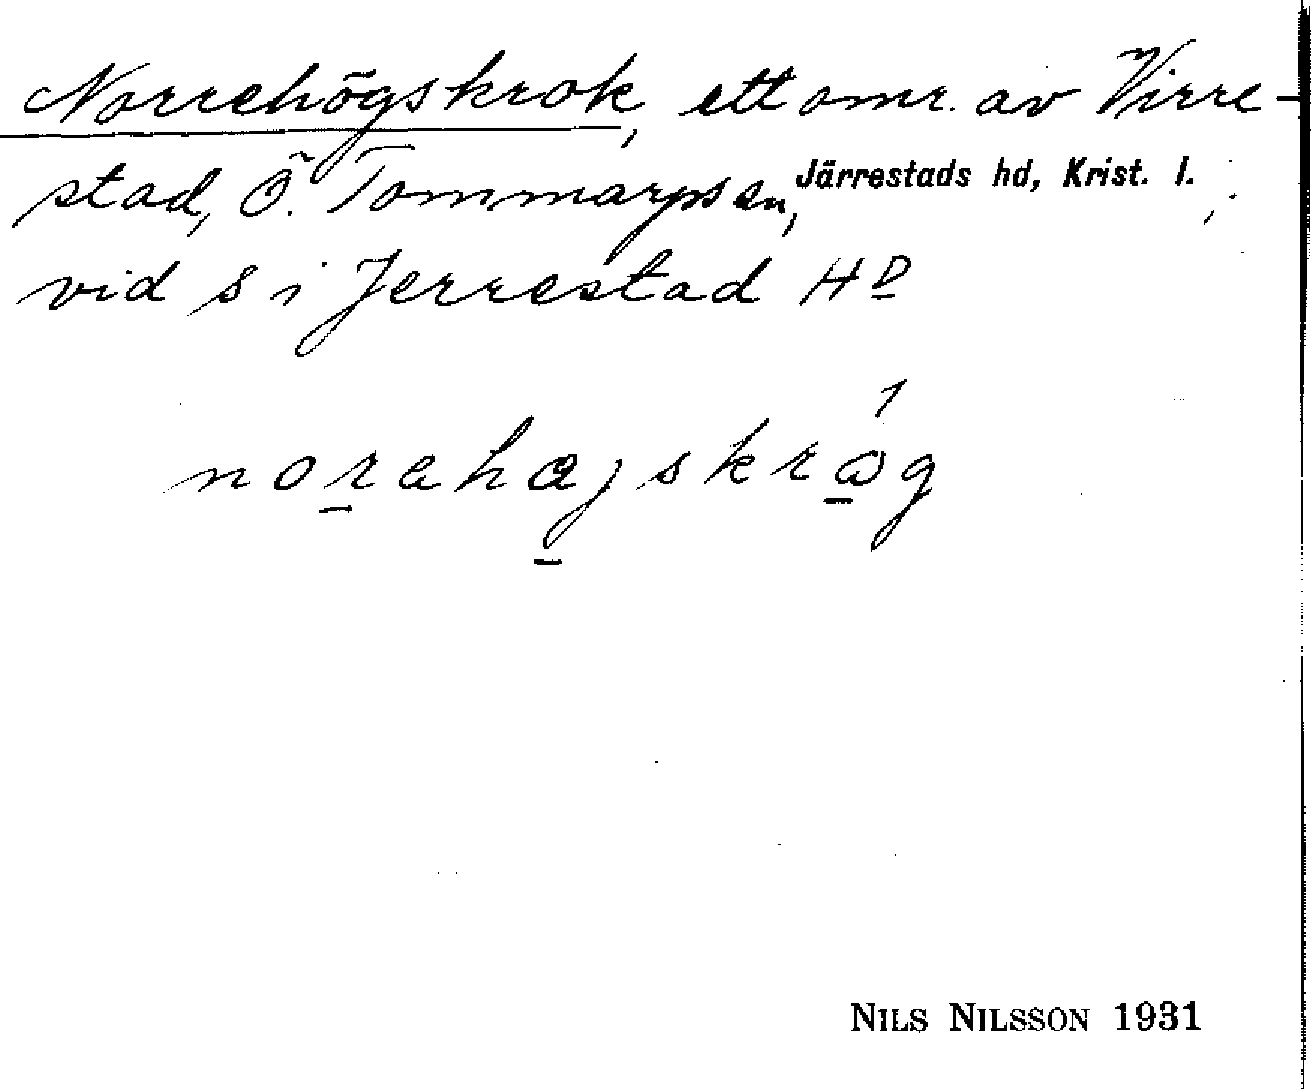 Norrehögskrok, ett omr. av Virre-
stad, Ö. Tommarps sn, Järrestads hd, Krist. l.;
vid s i Jerrestad HD
norahajskråg
NILS NILSSON 1931